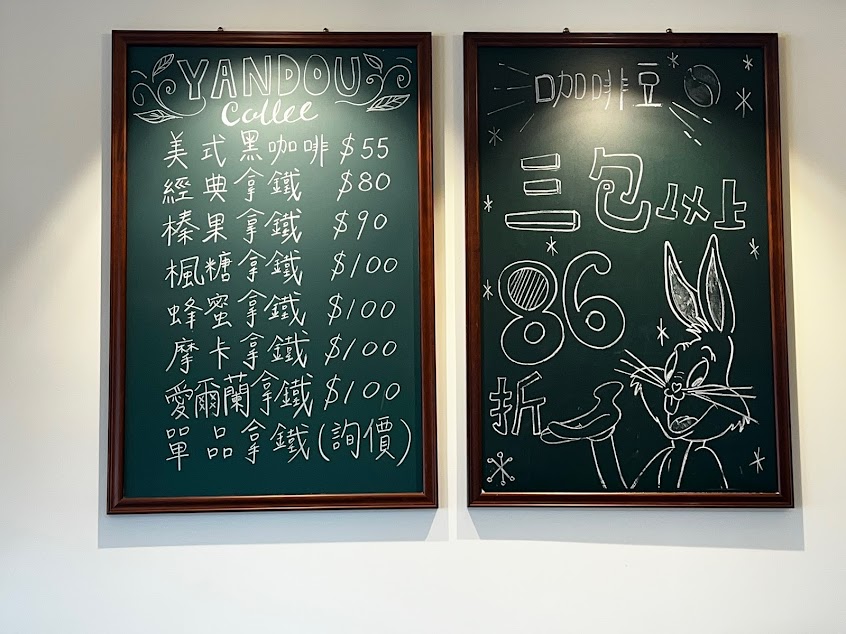 YANDOU
Coffee
美式黑咖啡 $55
經典拿鐵 $80
榛果拿鐵 $90
楓糖拿鐵 $100
蜂蜜拿鐵 $100
摩卡拿鐵 $100
愛爾蘭拿鐵 $100
單品拿鐵(詢價)
咖啡豆
三包以上
86
折